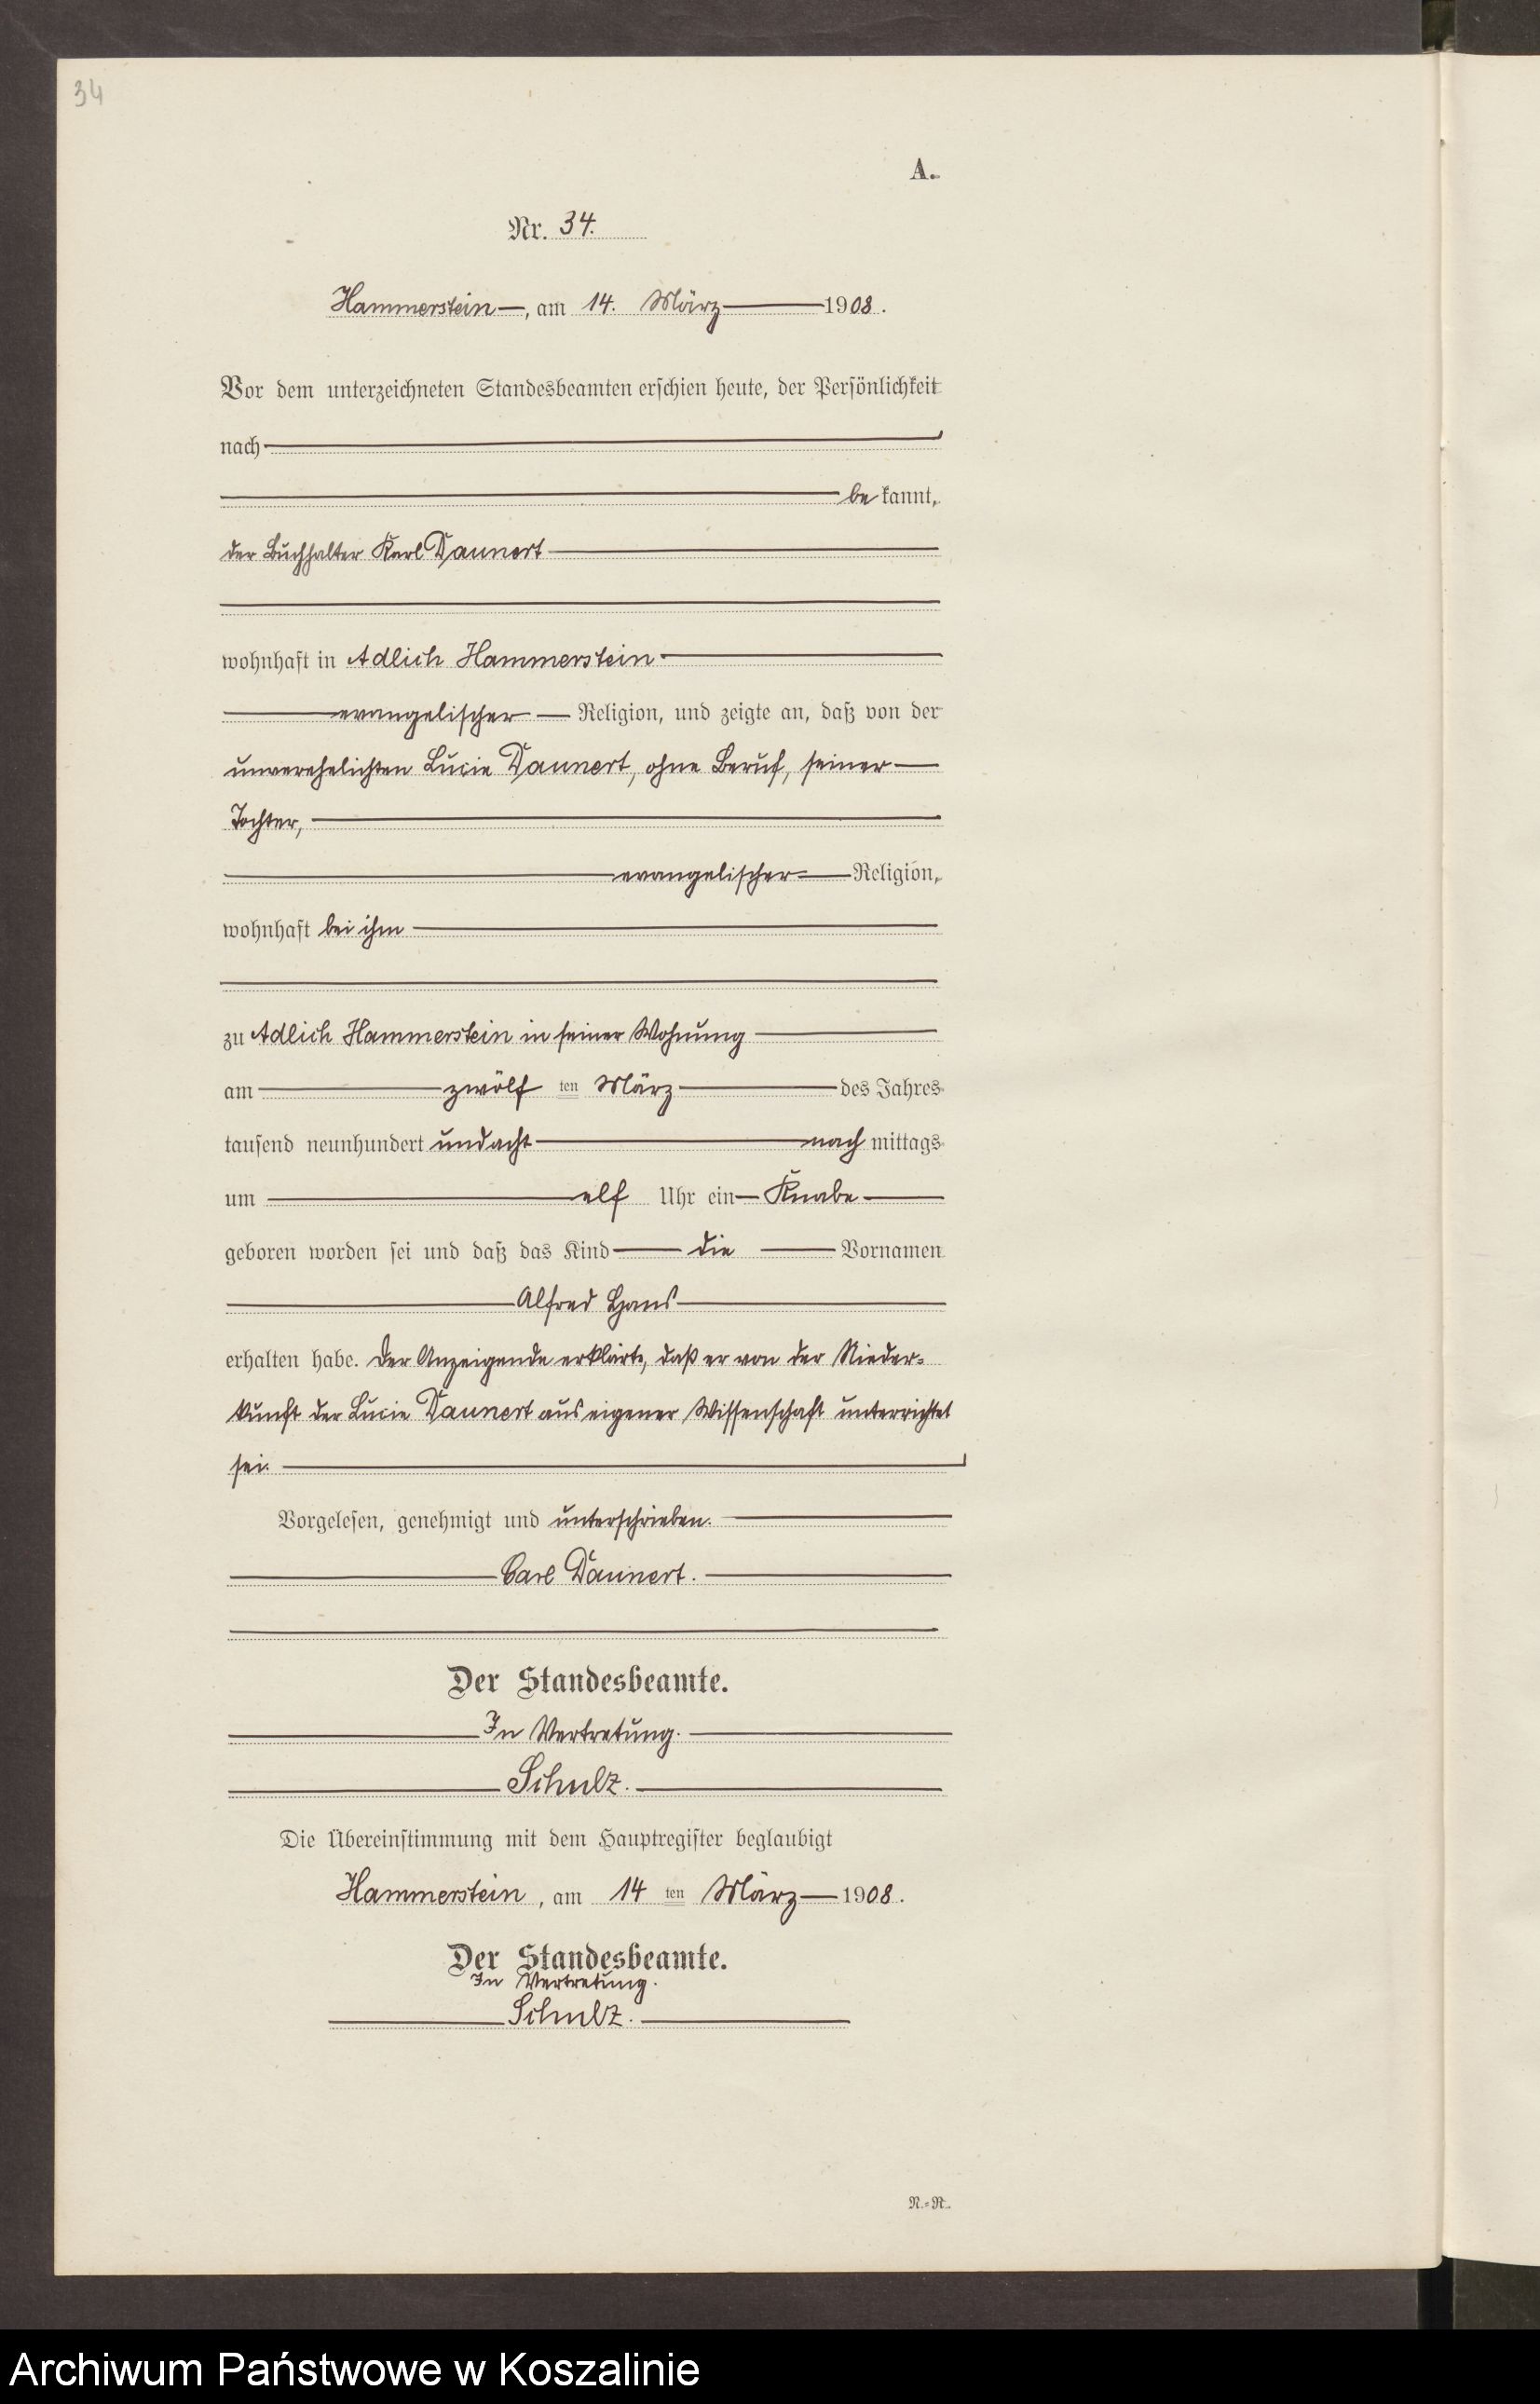 34
A.
Nr. 34.
Hammerstein, am 14. März 1908.
Vor dem unterzeichneten Standesbeamten erschien heute, der Persönlichkeit
nach
be kannt,
der Buchhalter Karl Daunert
wohnhaft in Adlich Hammerstein
evangelischer Religion, und zeigte an, daß von der
unverehelichten Lucie Daunert, ohne Beruf, seiner
Tochter,
evangelischer Religion,
wohnhaft bei ihm
zu Adlich Hammerstein in seiner Wohnung
am zwölf ten März des Jahres
tausend neunhundert undacht nach mittags
um elf Uhr ein Knabe
geboren worden sei und daß das Kind die Vornamen
Alfred Hans
erhalten habe. Der Anzeigende erklärte, daß er von der Nieder-
kunft der Lucie Daunert aus eigener Wissenschaft unterrichtet
sei.
Vorgelesen, genehmigt und unterschrieben.
Carl Daunert.
Der Standesbeamte.
In Vertretung.
Schulz.
Die Übereinstimmung mit dem Hauptregister beglaubigt
Hammerstein, am 14 ten März 1908.
Der Standesbeamte.
In Vertretung.
Schulz.
N.-R.
Archiwum Państwowe w Koszalinie